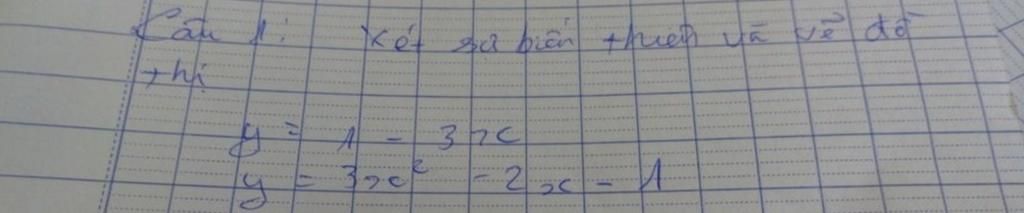 Câu 1: Xét sự biến thiên và vẽ đồ
thị
y = 1 - 3x
y = 3x² - 2x - 1